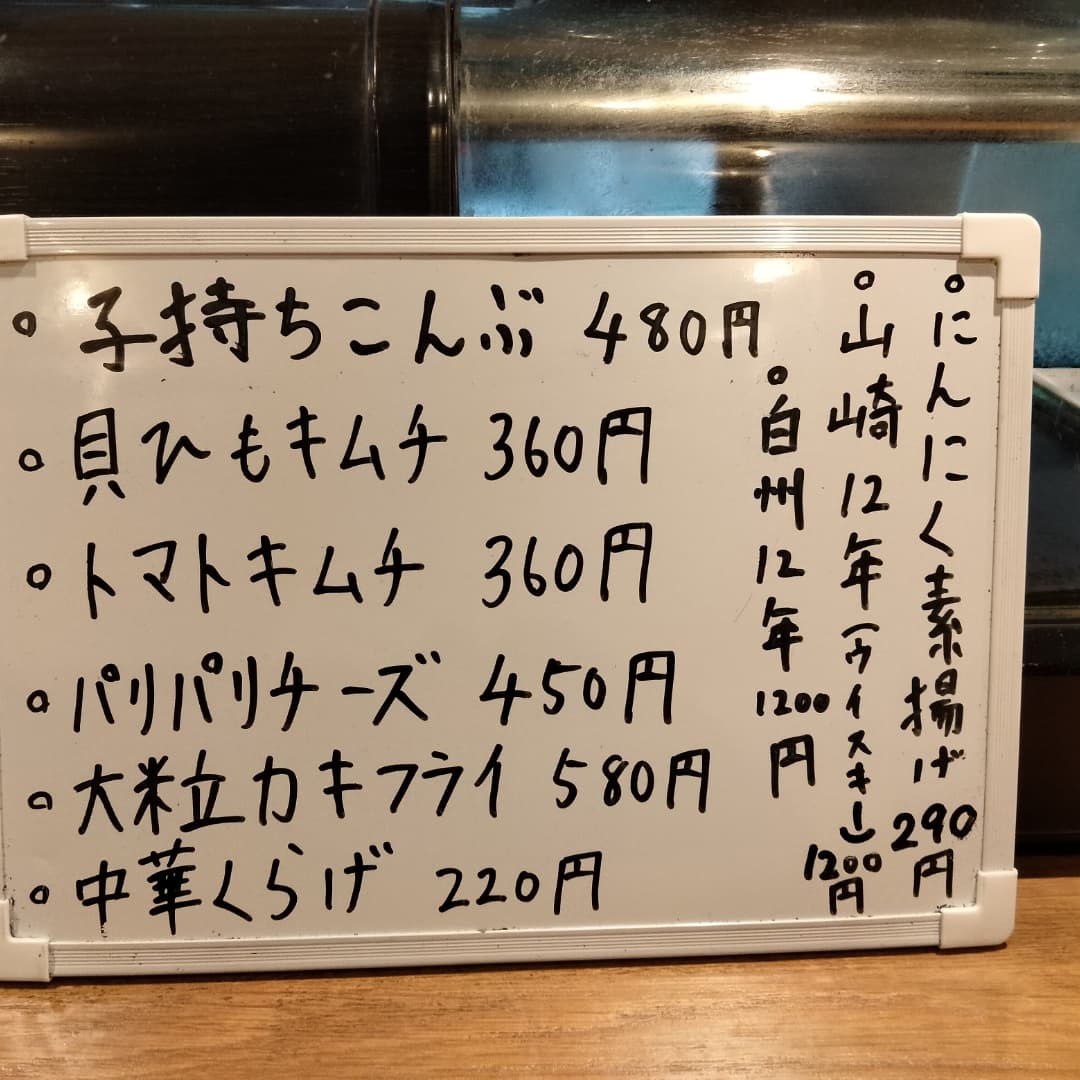 ◦ 子持ちこんぶ 480円
◦ 貝ひもキムチ 360円
◦ トマトキムチ 360円
◦ パリパリチーズ 450円
◦ 大粒カキフライ 580円
◦ 中華くらげ 220円
◦ にんにく素揚げ 290円
◦ 山崎12年(ウイスキー) 1200円
◦ 白州12年 1200円